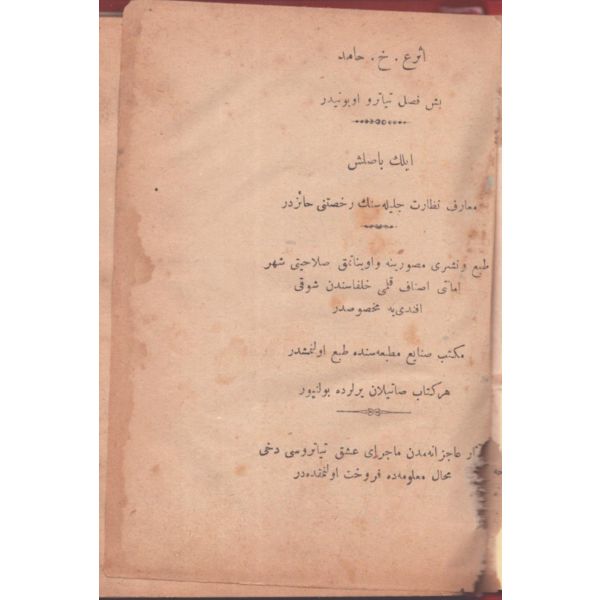 اثر ع . خ . حامد
بش فصل تیاترو اویونیدر
ایلك باصلش
معارف نظارت جلیله‌سنك رخصتنی حائزدر
طبع ونشری مصورینه واوینامق صلاحیتی شهر
امانتی اصناف قلمی خلفاسندن شوقی
افندی‌یه مخصوصدر
مكتب صنایع مطبعه‌سنده طبع اولنمشدر
هر كتاب صاتیلان یرلرده بولنیور
عاجزانه‌مدن ماجرای عشق تیاتروسی دخی
محال معلومه‌ده فروخت اولنمقده‌در